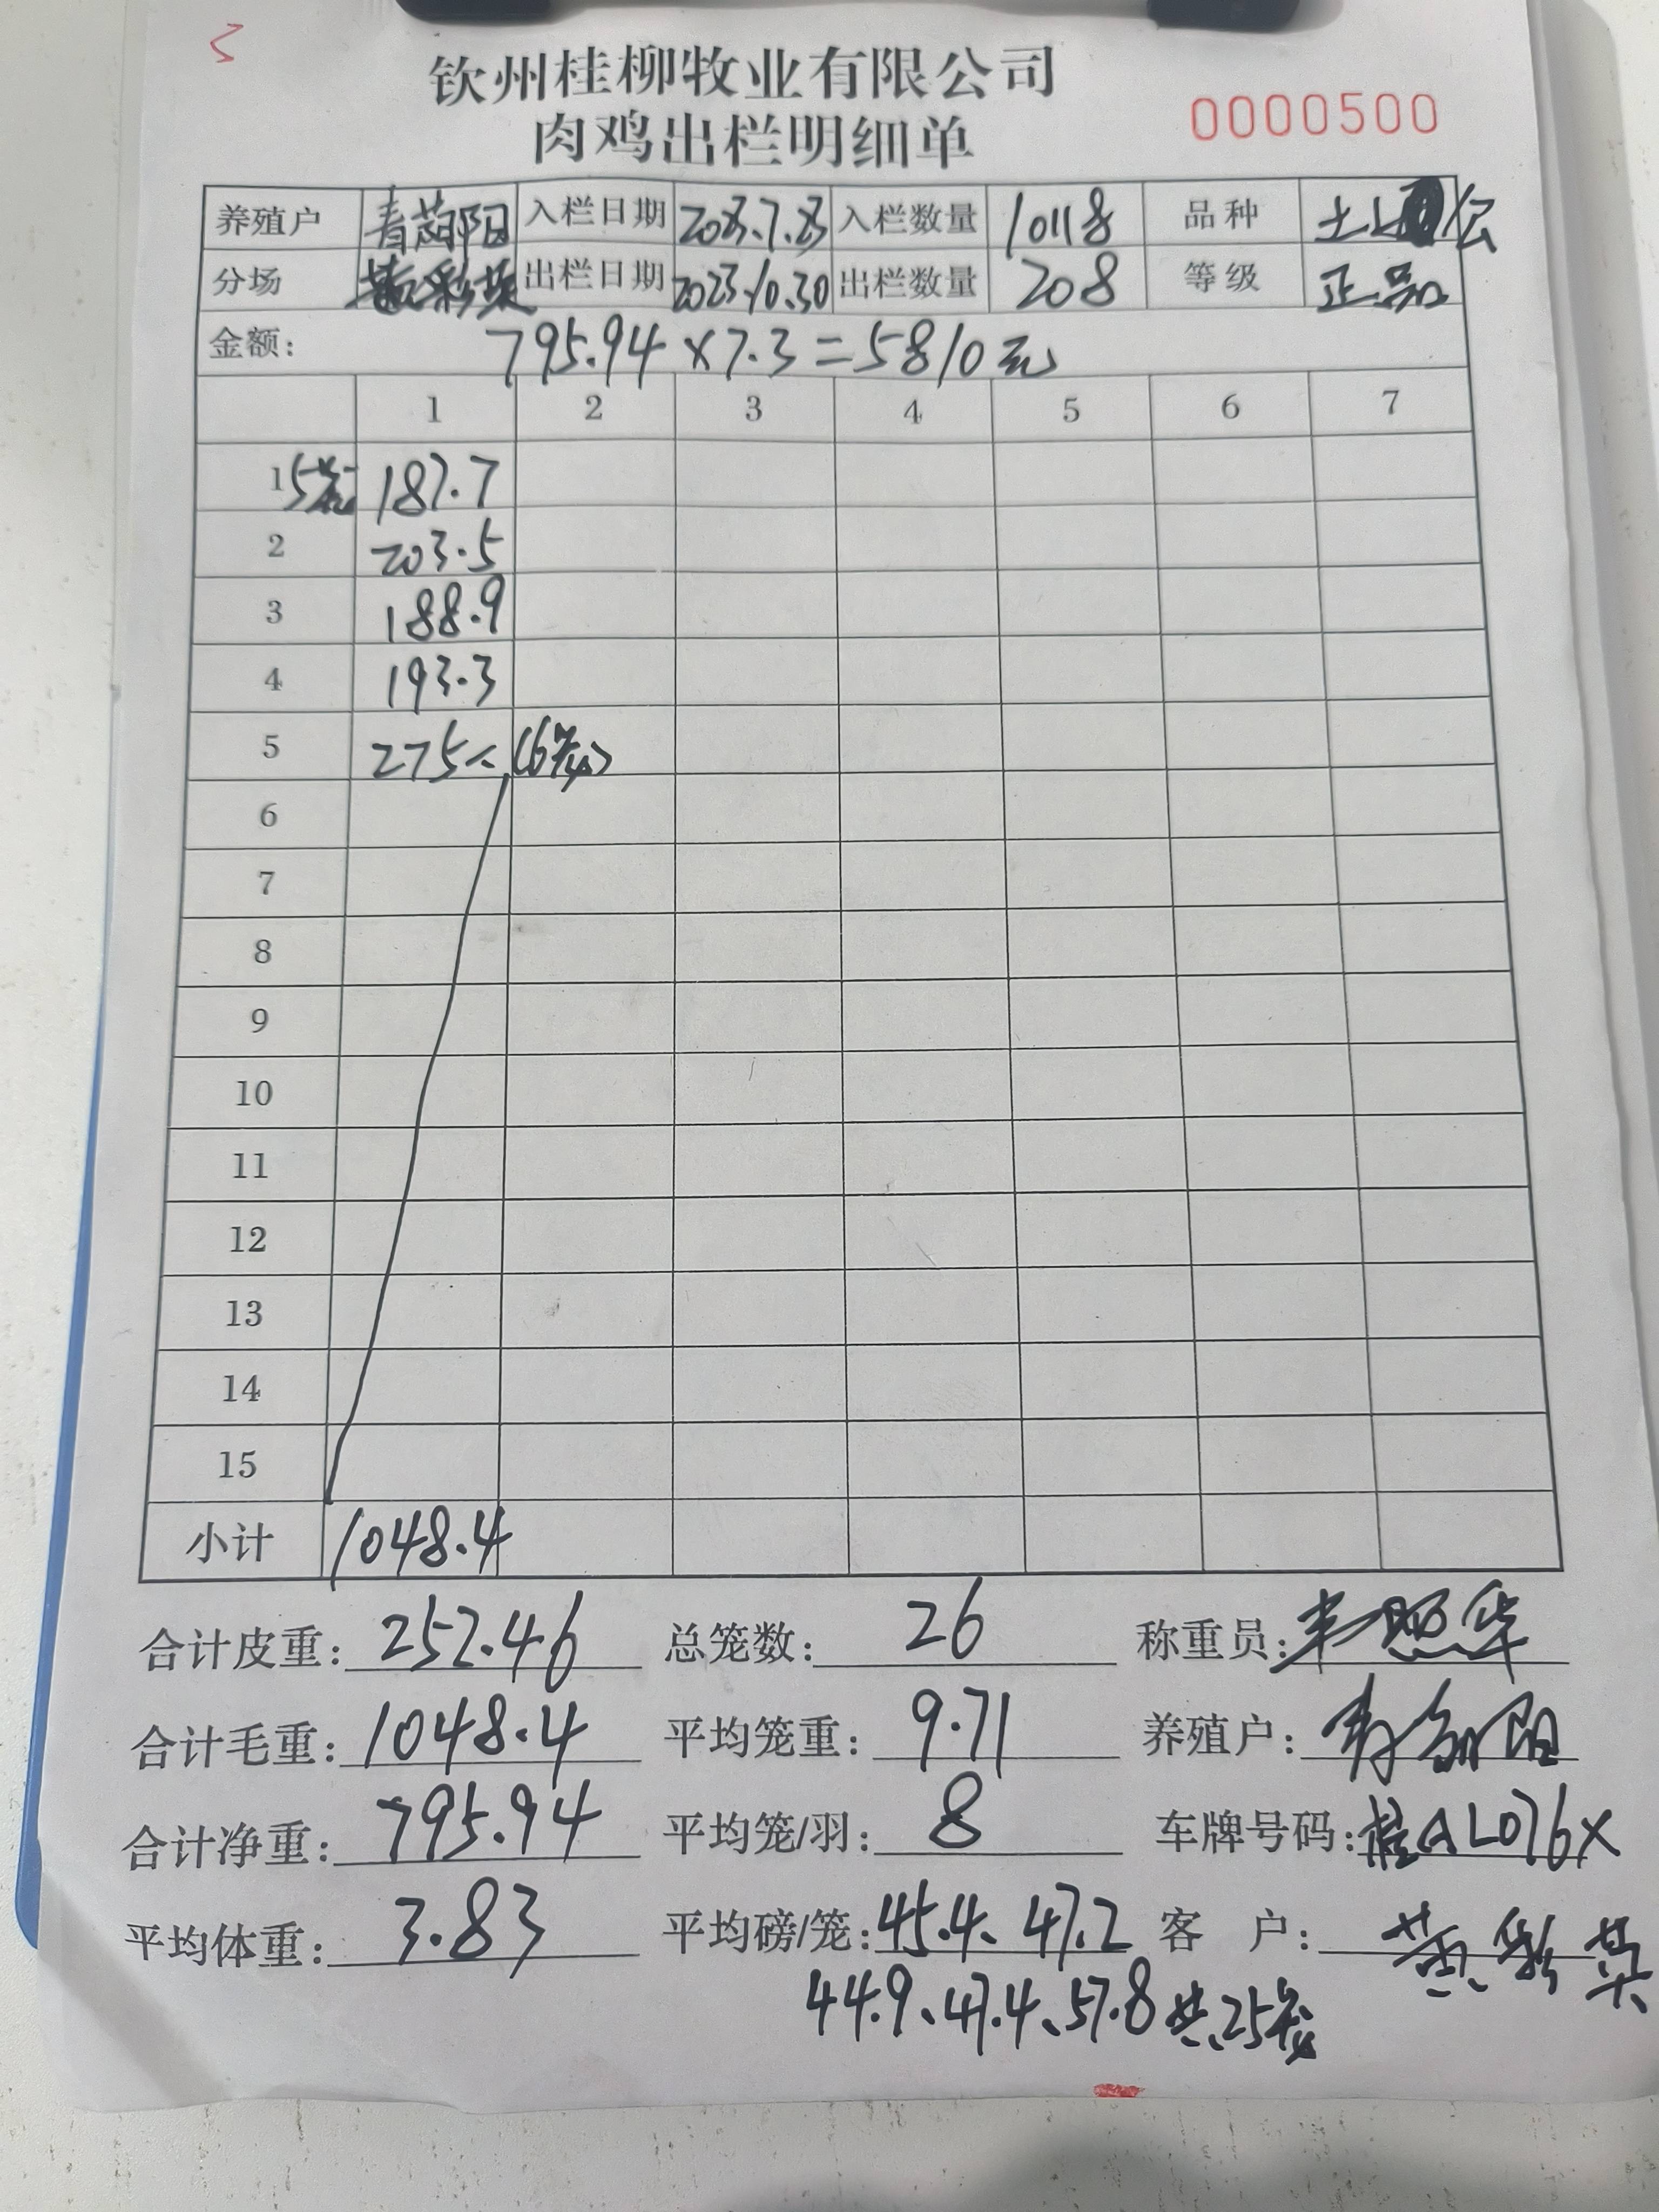 钦州桂柳牧业有限公司
肉鸡出栏明细单
0000500
养殖户 入栏日期 2023.7.23 入栏数量 10118 品种 土 公
分场 出栏日期 2023.10.30 出栏数量 208 等级 正品
金额: 795.94×7.3=5810元
1 2 3 4 5 6 7
1 5笼 187.7
2 203.5
3 188.9
4 193.3
5 275 (6笼)
6
7
8
9
10
11
12
13
14
15
小计 1048.4
合计皮重: 252.46 总笼数: 26 称重员:
合计毛重: 1048.4 平均笼重: 9.71 养殖户:
合计净重: 795.94 平均笼/羽: 8 车牌号码: 桂AL076X
平均体重: 3.83 平均磅/笼: 45.4、47.2 客 户: 黄彩英
44.9、47.4、57.8 共25笼